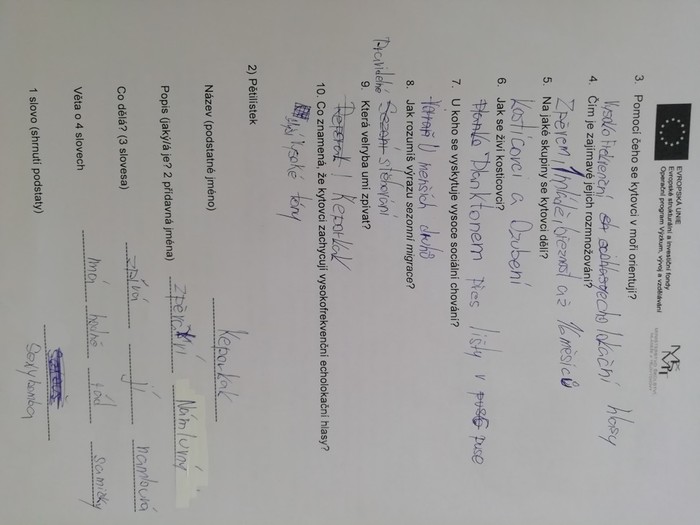 EVROPSKÁ UNIE
Evropské strukturální a investiční fondy
Operační program Výzkum, vývoj a vzdělávání
3. Pomocí čeho se kytovci v moři orientují?
Vysokofrekvenční echolokační hlasy
4. Čím je zajímavé jejich rozmnožování?
Zpěvem, březnost až 16 měsíců
5. Na jaké skupiny se kytovci dělí?
Kosticovci a Ozubení
6. Jak se živí kosticovci?
Planktonem přes lišty v puse
7. U koho se vyskytuje vysoce sociální chování?
U menších druhů
8. Jak rozumíš výrazu sezonní migrace?
Pravidelné stěhování
9. Která velryba umí zpívat?
Keporkak
10. Co znamená, že kytovci zachycují vysokofrekvenční echolokační hlasy?
Vysoké tóny
2) Pětilístek
Název (podstatné jméno) Keporkak
Popis (jaký/á je? 2 přídavná jména) Námluvný
Co dělá? (3 slovesa) zpívá jí namlouvá
Věta o 4 slovech má hodně rád samičky
1 slovo (shrnutí podstaty)